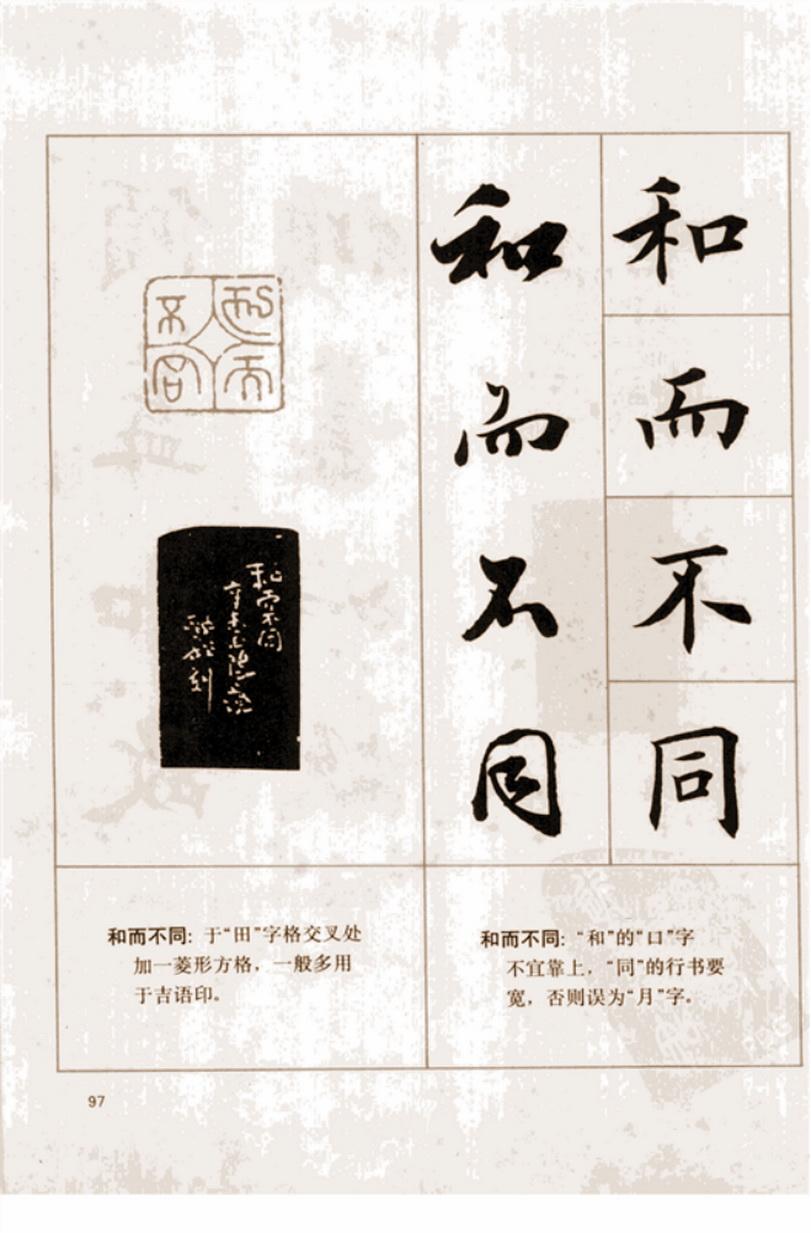 和而不同
和而不同
和而不同
和而不同
和而不同：于“田”字格交叉处
加一菱形方格，一般多用
于吉语印。
和而不同：“和”的“口”字
不宜靠上，“同”的行书要
宽，否则误为“月”字。
97